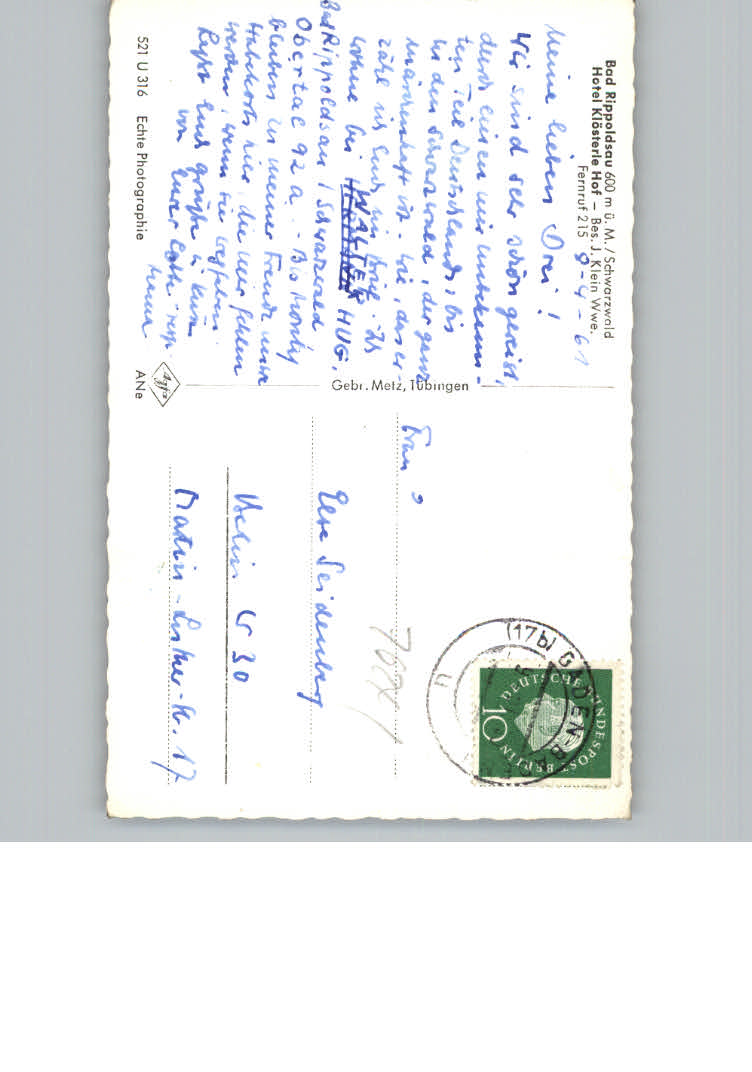 Bad Rippoldsau 600 m ü. M. / Schwarzwald
Hotel Klösterle Hof – Bes. J. Klein Wwe.
Fernruf 215
9-4-61
Meine lieben Drei!
Wir sind sehr schön gereist,
durch einen mir unbekann-
ten Teil Deutschlands, bis
in den Schwarzwald, der ganz
märchenhaft ist - wie, das er-
zähl ich Euch im Brief. Ich
wohne bei WALTER HUG,
Bad Rippoldsau / Schwarzwald
Obertal 92a. - Bis
bleiben in meiner Freude unsre
hier, die mir fehlen
werden, wenn sie wegfahren.
Euch grüßt
von Eurer
Hanna
521 U 316 Echte Photographie
Gebr. Metz, Tübingen
Agfa
ANe
Frau
Seidenberg
Berlin W 30
Martin-Luther-Str. 17
(17b) BADEN-BADEN
n
DEUTSCHE BUNDESPOST BERLIN
10